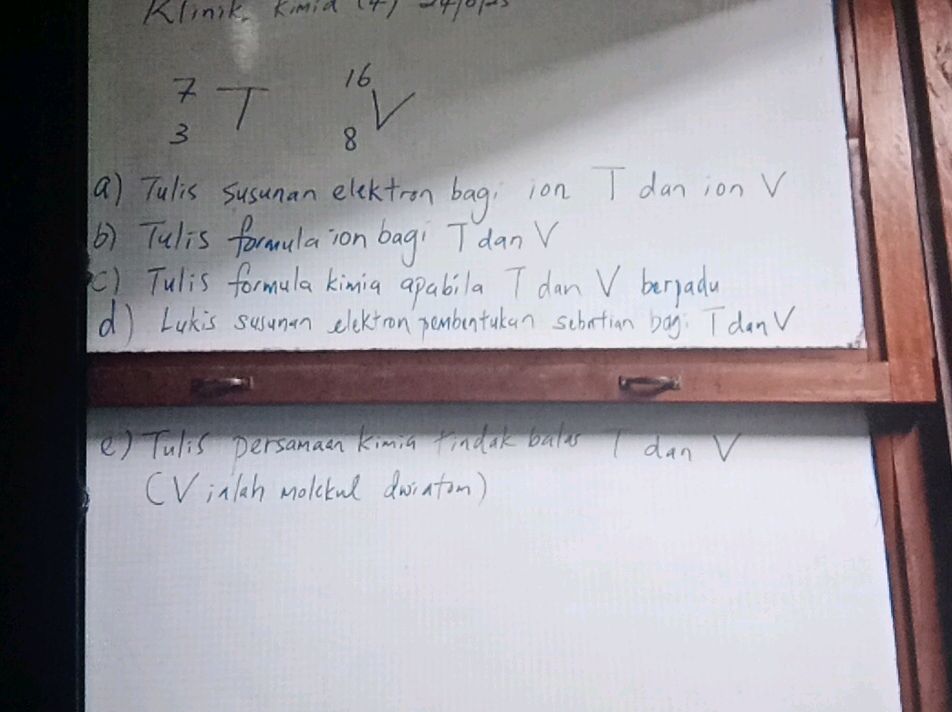 Klinik Kimia (4)
7 T 16 V
3 8
a) Tulis susunan elektron bagi ion T dan ion V
b) Tulis formula ion bagi T dan V
c) Tulis formula kimia apabila T dan V berpadu
d) Lukis susunan elektron pembentukan sebatian bagi T dan V
e) Tulis persamaan kimia tindak balas T dan V
(V ialah molekul dwiatom)